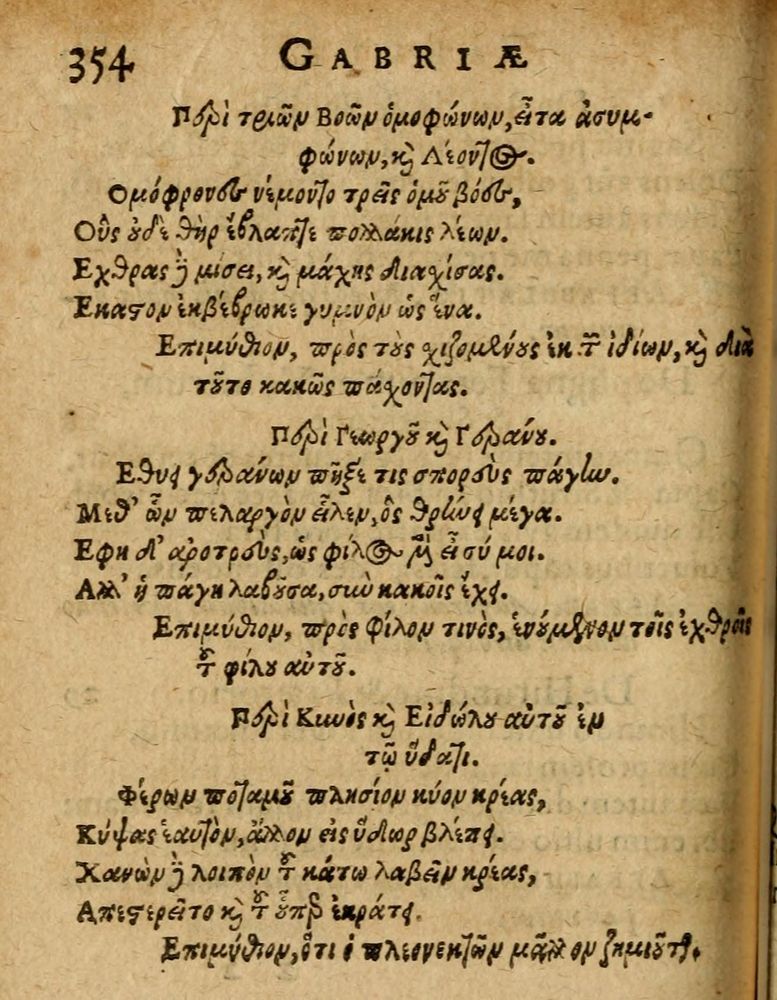 354 GABRIÆ
Περὶ τριῶν Βοῶν ὁμοφώνων, εἶτα ἀσυμ-
φώνων, καὶ Λέοντος.
Ομόφρονες νέμοντο τρεῖς ὁμοῦ βόες,
Οὓς οὐδὲ θὴρ ἔβλαπτε πολλάκις λέων.
Εχθρας δὲ μίσει, καὶ μάχης διαχίσας.
Εκαστον ἐκβέβρωκε γυμνὸν ὡς ἕνα.
Επιμύθιον, πρὸς τοὺς χιζομένους ἐκ τῶν ἰδίων, καὶ διὰ
τοῦτο κακῶς πάχοντας.
Περὶ Γεωργοῦ καὶ Γεράνου.
Εθνει γεράνων πῆξέ τις σπορεὺς πάγην.
Μεθ' ὧν πελαργὸν εἷλεν, ὃς θρήνει μέγα.
Εφη δ' ἀροτρεὺς, ὡς φίλος μὲν εἶ σύ μοι.
Αλλ' ἡ πάγη λαβοῦσα, σὺν κακοῖς ἔχει.
Επιμύθιον, πρὸς φίλον τινὸς, ἑνούμενον τοῖς ἐχθροῖς
τοῦ φίλου αὐτοῦ.
Περὶ Κυνὸς καὶ Εἰδώλου αὐτοῦ ἐν
τῷ ὕδατι.
Φέρων ποταμοῦ πλησίον κύον κρέας,
Κύψας ἑαυτὸν, ἄλλον εἰς ὕδωρ βλέπει.
Χανὼν δὲ λοιπὸν τοῦ κάτω λαβεῖν κρέας,
Απεστερεῖτο καὶ τοῦ ὗπερ ἐκράτει.
Επιμύθιον, ὅτι ὁ πλεονεκτῶν μᾶλλον ζημιοῦται.